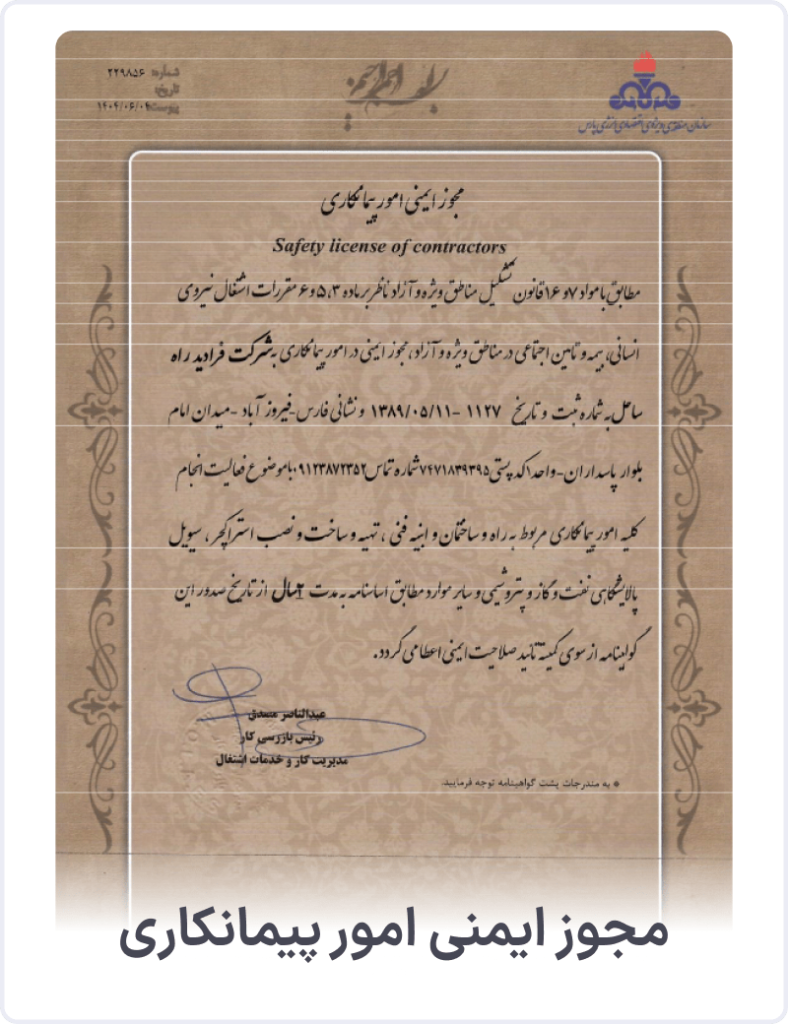 شماره: ۲۲۹۸۵۶
تاریخ:
پیوست: ۱۴۰۴/۰۶/۰۴
سازمان منطقه ویژه اقتصادی انرژی پارس
مجوز ایمنی امور پیمانکاری
Safety license of contractors
مطابق با مواد ۷ و ۱۶ قانون تشکیل مناطق ویژه و آزاد ناظر بر ماده ۳، ۵ و ۶ مقررات اشتغال نیروی
انسانی، بیمه و تامین اجتماعی در مناطق ویژه و آزاد، مجوز ایمنی در امور پیمانکاری به شرکت فرادید راه
ساحل به شماره ثبت و تاریخ ۱۱۲۷ -۱۳۸۹/۰۵/۱۱ و نشانی فارس-فیروز آباد -میدان امام
بلوار پاسداران-واحد۱ کد پستی ۷۴۷۱۸۳۹۳۹۵ شماره تماس ۰۹۱۲۳۸۷۲۳۵۲ با موضوع فعالیت انجام
کلیه امور پیمانکاری مربوط به راه و ساختمان و ابنیه فنی ، تهیه و ساخت و نصب استراکچر ، سیویل
پالایشگاهی نفت و گاز و پتروشیمی و سایر موارد مطابق اساسنامه به مدت ۲سال از تاریخ صدور این
گواهینامه از سوی کمیته تائید صلاحیت ایمنی اعطا می گردد.
عبدالناصر مصدق
رئیس بازرسی کار
مدیریت کار و خدمات اشتغال
* به مندرجات پشت گواهینامه توجه فرمایید.
مجوز ایمنی امور پیمانکاری